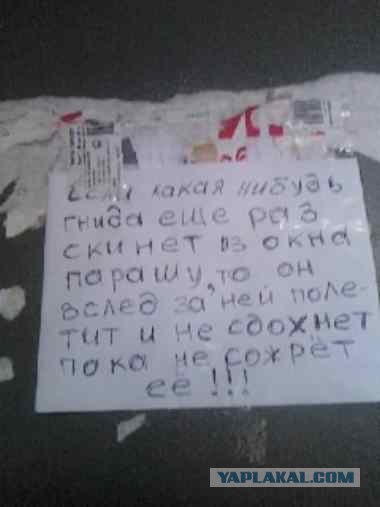 Если какая нибудь
гнида еще раз
скинет из окна
парашу, то он
вслед за ней поле-
тит и не сдохнет
пока не сожрёт
её!!!
YAPLAKAL.COM